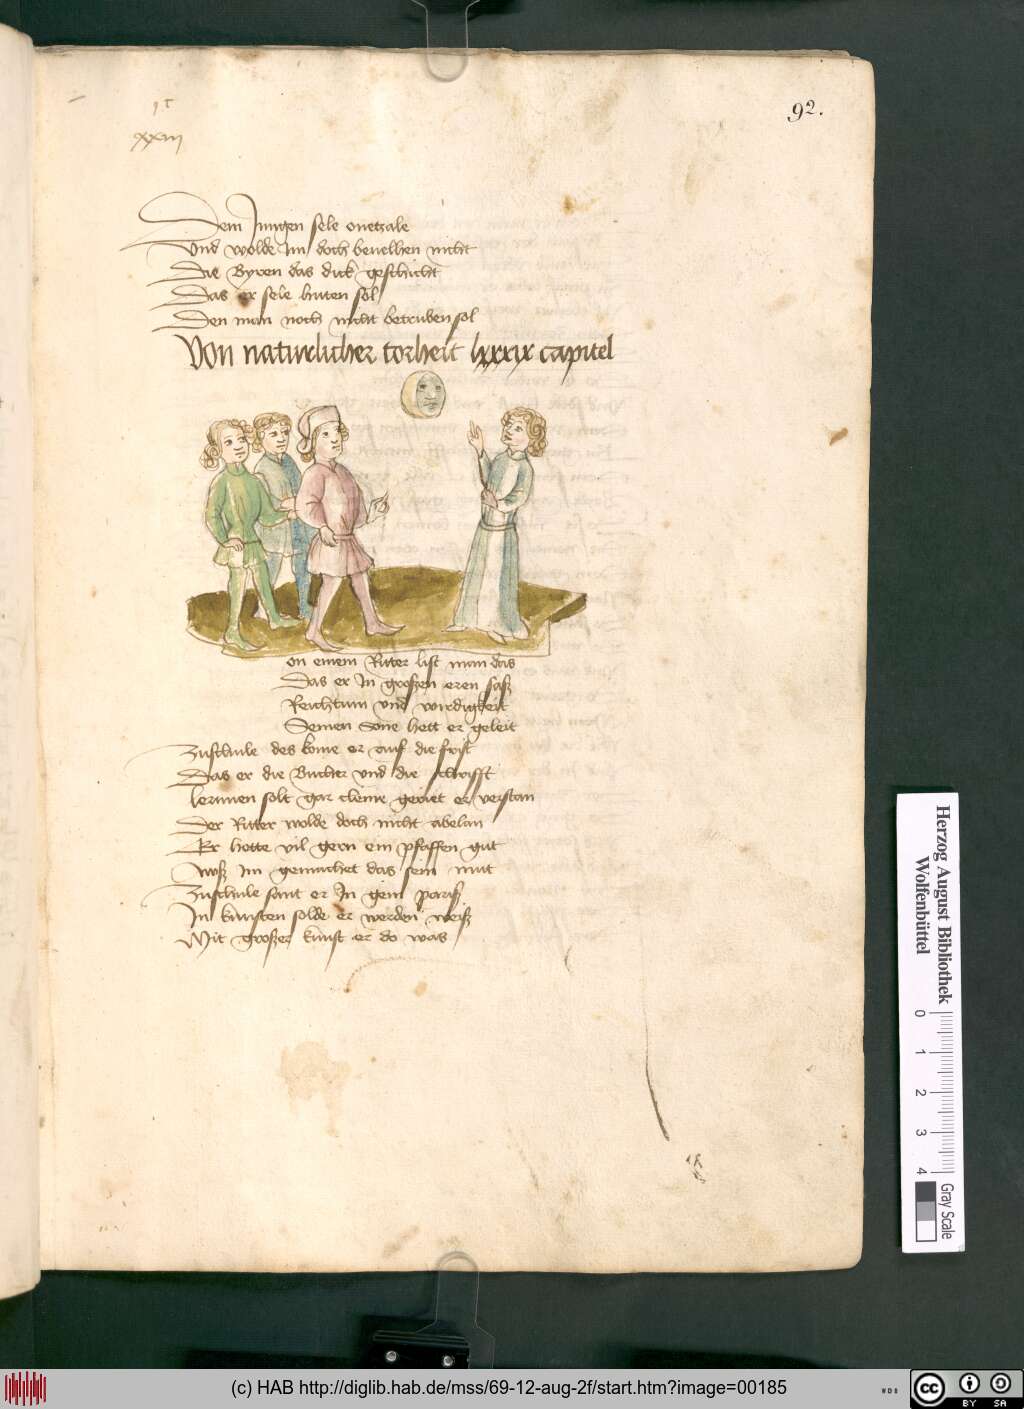 92.
xxiii
Dem Jungen sele one zale
Vnd wolde im doch beuelhen nicht
Die Byren das dick geschicht
Das er sele huten sol
Den man noch nicht betruben sol
Von naturlicher torheit lxxxix capitel
on einem Ritter list man das
Das er In großen eren saß
Reichtum vnd wirdigkeit
Seinen sone hett er geleit
Zuschule des kome er auf die frist
Das er die Bucher vnd die schrifft
lernnen solt gar cleine er verstan
Der Ritter wolde doch nicht abelan
Er hette vil gern ein pfaffen gut
Im gemachet das sein mut
Zuschule sant er In gein pariß
In kunsten solde er werden weiß
Mit großer kunst er do was
Herzog August Bibliothek
Wolfenbüttel
0 1 2 3 4
Gray Scale
(c) HAB http://diglib.hab.de/mss/69-12-aug-2f/start.htm?image=00185
WDB
cc BY SA